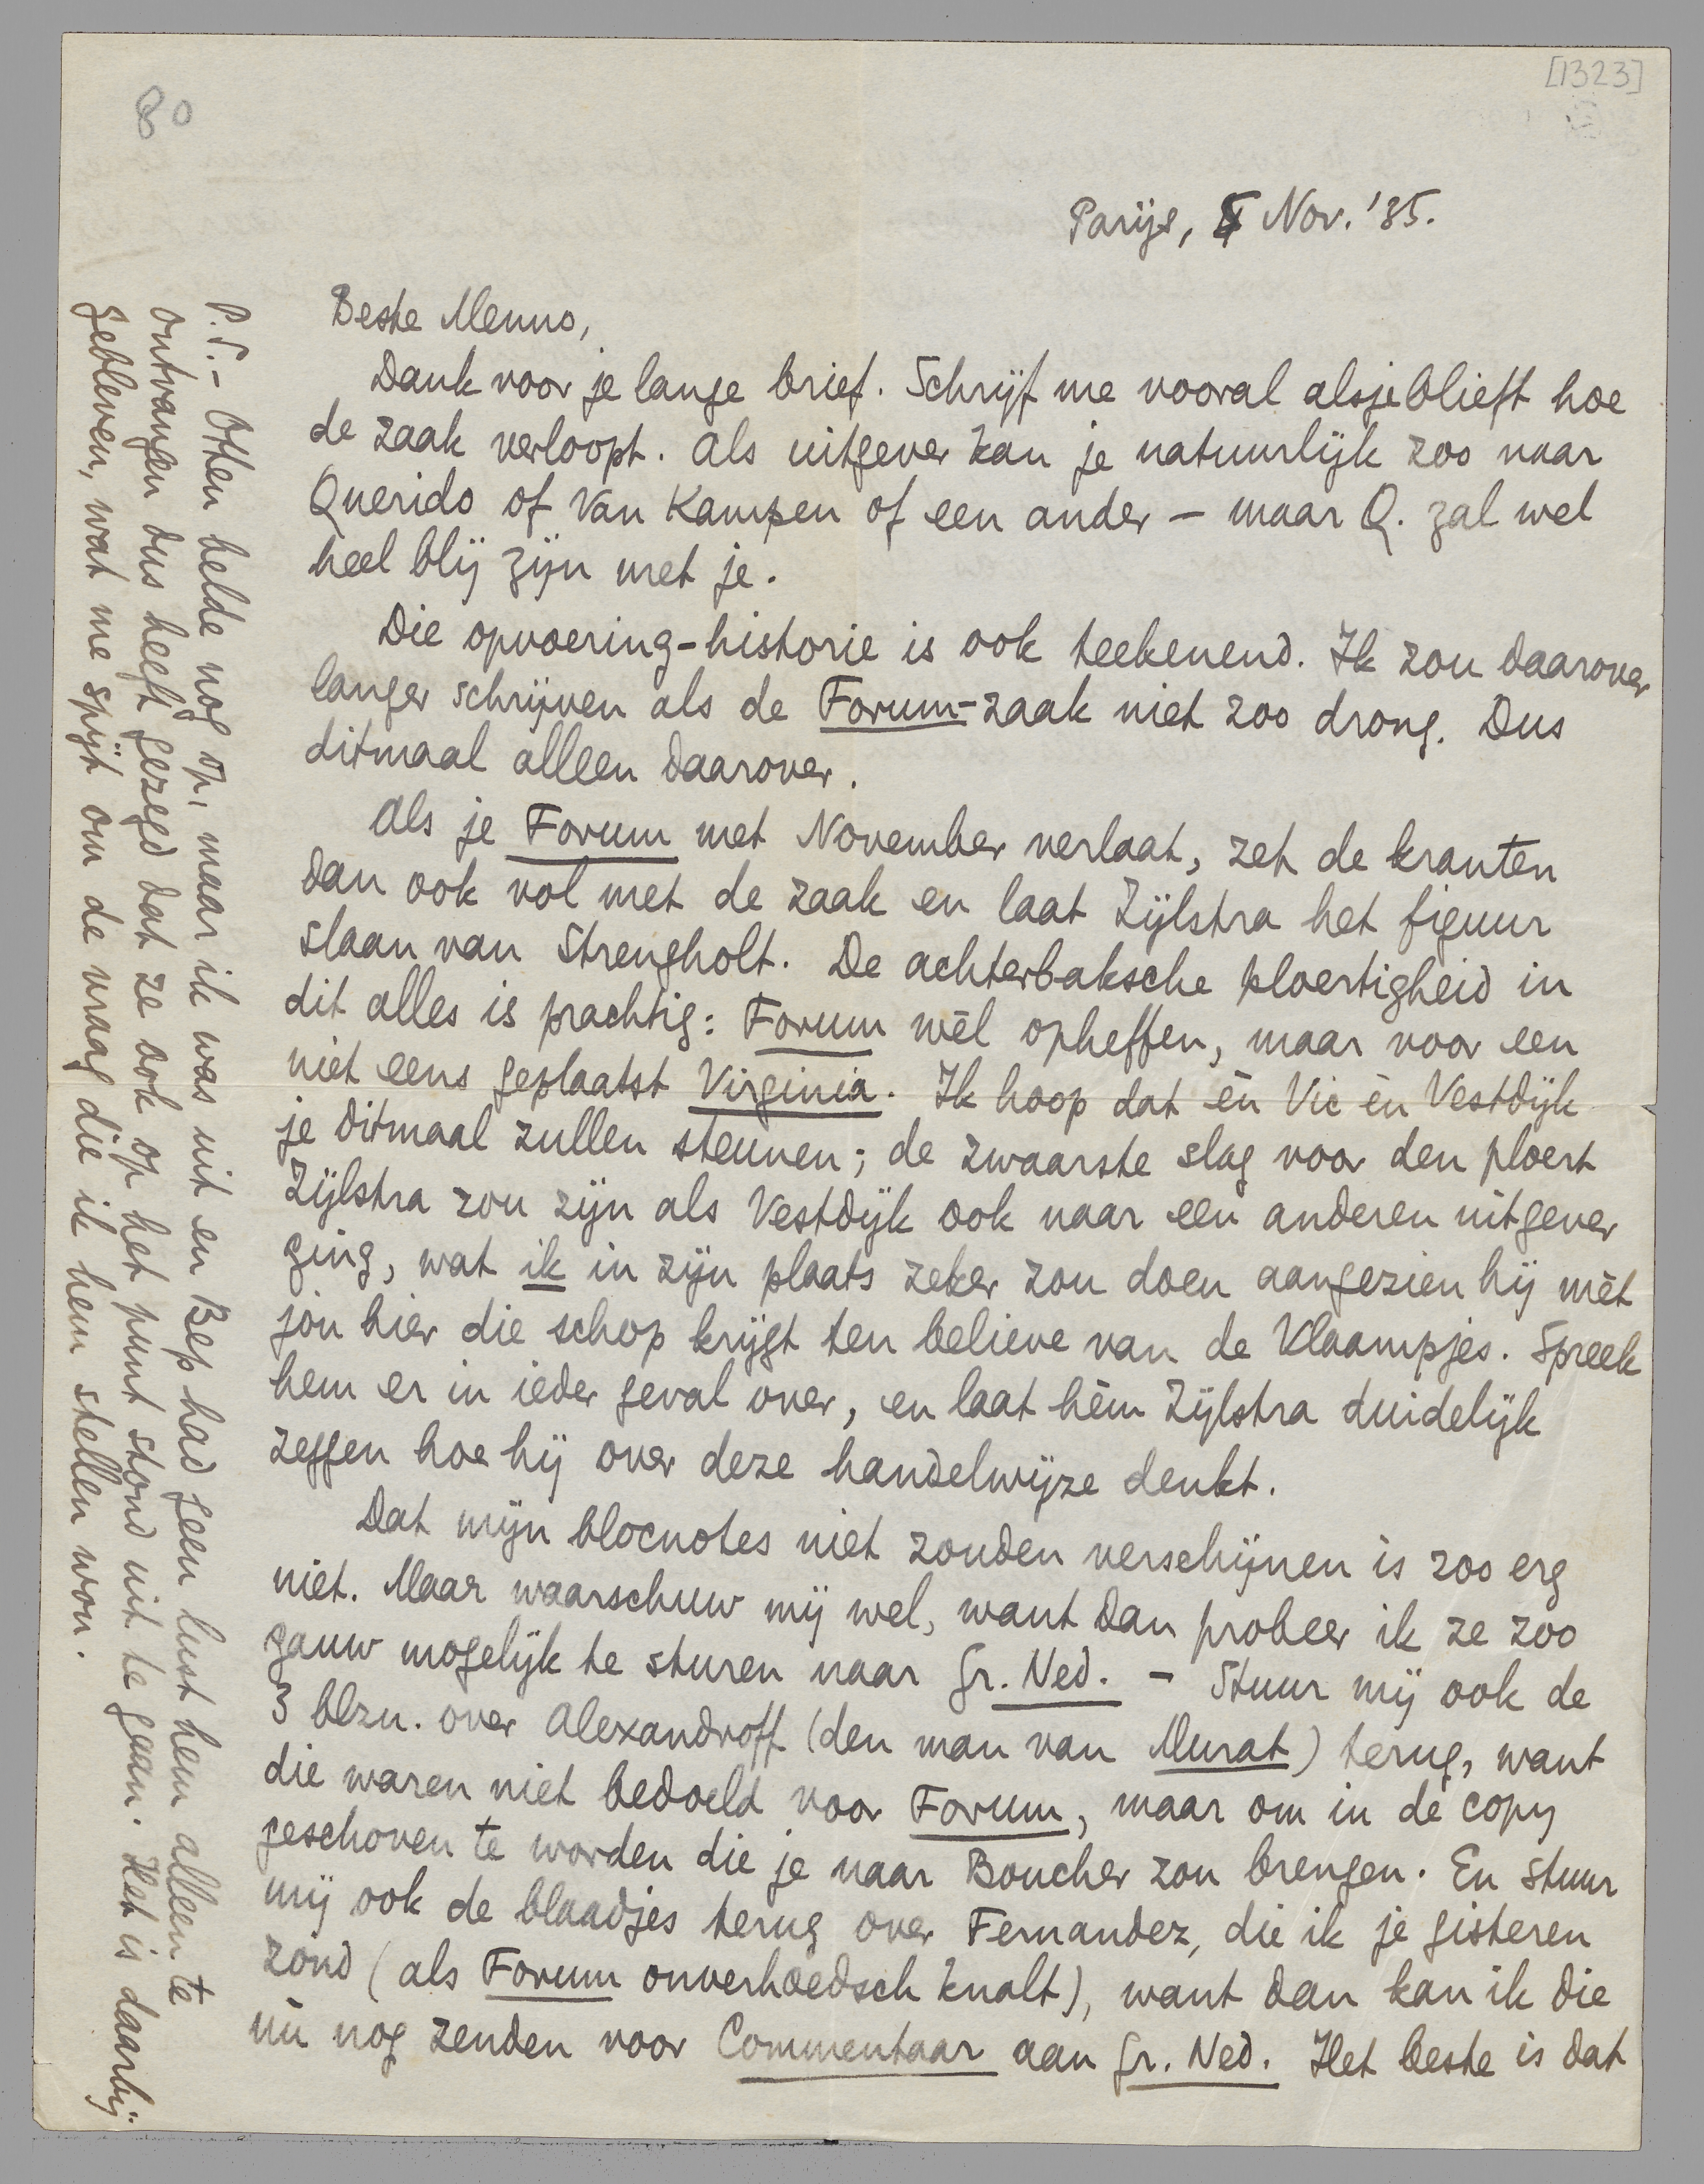 80
[1323]
Parijs, 5 Nov. '35.
Beste Menno,
Dank voor je lange brief. Schrijf me vooral alsjeblieft hoe
de zaak verloopt. Als uitgever kan je natuurlijk zoo naar
Querido of Van Kampen of een ander – maar Q. zal wel
heel blij zijn met je.
Die opvoering-historie is ook teekenend. Ik zou daarover
langer schrijven als de Forum-zaak niet zoo drong. Dus
ditmaal alleen daarover.
Als je Forum met November verlaat, zet de kranten
dan ook vol met de zaak en laat Zijlstra het figuur
slaan van Strengholt. De achterbaksche ploertigheid in
dit alles is prachtig: Forum wèl opheffen, maar voor een
niet eens geplaatst Virginia. Ik hoop dat èn Vic èn Vestdijk
je ditmaal zullen steunen; de zwaarste slag voor den ploert
Zijlstra zou zijn als Vestdijk ook naar een anderen uitgever
ging, wat ik in zijn plaats zeker zou doen aangezien hij mèt
jòu hier die schop krijgt ten believe van de Vlaampjes. Spreek
hem er in ieder geval over, en laat hèm Zijlstra duidelijk
zeggen hoe hij over deze handelwijze denkt.
Dat mijn blocnotes niet zouden verschijnen is zoo erg
niet. Maar waarschuw mij wel, want dan probeer ik ze zoo
gauw mogelijk te sturen naar Gr. Ned. – Stuur mij ook de
3 blzn. over Alexandroff (den man van Murat) terug, want
die waren niet bedoeld voor Forum, maar om in de copy
geschoven te worden die je naar Boucher zou brengen. En stuur
mij ook de blaadjes terug over Fernandez, die ik je gisteren
zond (als Forum onverhoedsch knalt), want dan kan ik die
nù nog zenden voor Commentaar aan Gr. Ned. Het beste is dat
P.S. – Otten belde nog op, maar ik was uit en Bep had geen lust hem alleen te
ontvangen dus heeft gezegd dat ze ook op het punt stond uit te gaan. Het is daarbij
gebleven, wat me spijt om de vraag die ik hem stellen wou.